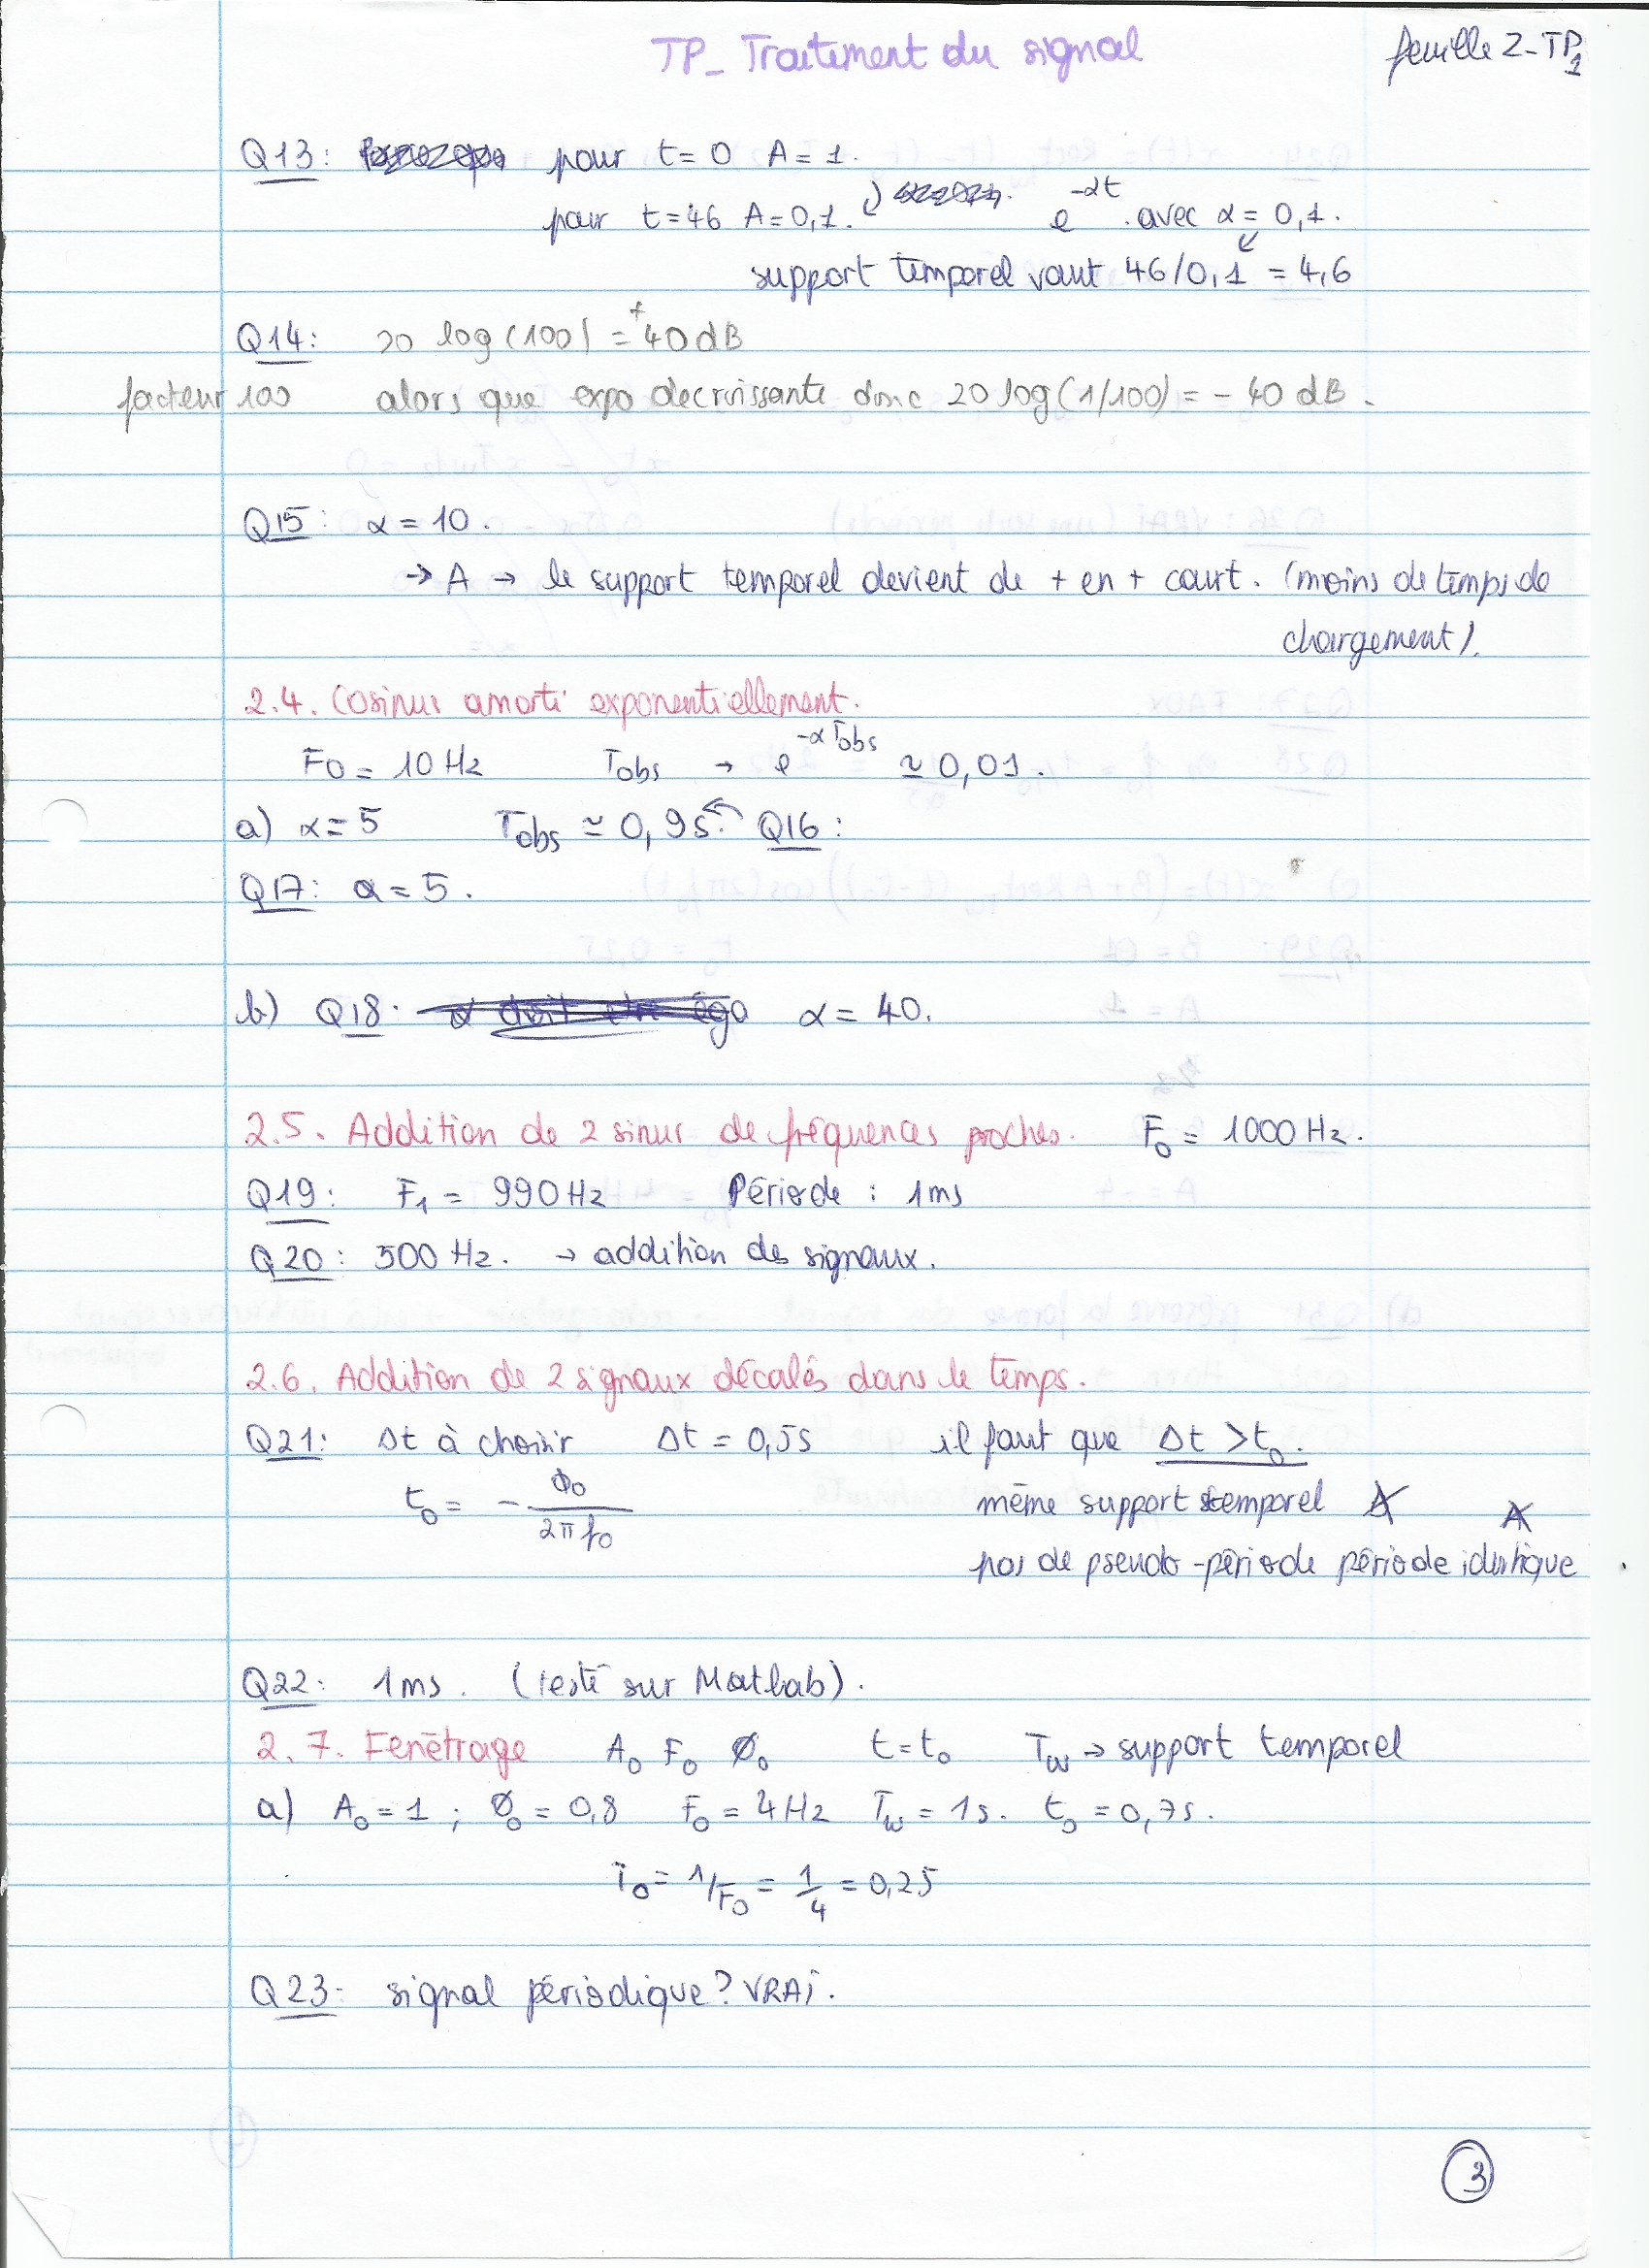 TP_ Traitement du signal
feuille 2_TP1
Q13: pour t= 0 A= 1.
pour t=46 A=0,1. e^-αt. avec α= 0,1.
support temporel vaut 46/0,1 = 4,6
Q14: 20 log(100) = +40dB
facteur 100 alors que expo decroissante donc 20 log(1/100) = - 40 dB.
Q15: α = 10.
→ A → le support temporel devient de + en + court. (moins de temps de
chargement).
2.4. Cosinus amorti exponentiellement.
F0 = 10 Hz Tobs → e^-αTobs ≃ 0,01.
a) α=5 Tobs ≃ 0,9s. ← Q16:
Q17: α = 5.
b) Q18. α = 40.
2.5. Addition de 2 sinus de fréquences proches. F0 = 1000 Hz.
Q19: F1 = 990 Hz Période : 1ms
Q20: 500 Hz. → addition des signaux.
2.6. Addition de 2 signaux décalés dans le temps.
Q21: Δt à choisir Δt = 0,5s il faut que Δt > t0.
t0 = - Φ0 / 2π f0 même support temporel
pas de pseudo-période période identique
Q22: 1ms. (testé sur Matlab).
2.7. Fenêtrage A0 F0 Ø0 t=t0 Tw → support temporel
a) A0 = 1 ; Ø0 = 0,8 F0 = 4Hz Tw = 1s. t0 = 0,7s.
T0 = 1/F0 = 1/4 = 0,25
Q23: signal périodique? VRAI.
3